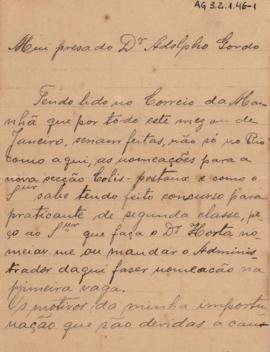 AG 3.2.1.46-1
Meu presado Dr. Adolpho Gordo
Tendo lido no Correio da Ma-
nhã que por todo este mez ou de
Janeiro, seriam feitas, não só no Rio
como aqui, as nomeações para a
nova secção Colis-postaux e como o
Snr sabe tendo feito concurso para
praticante de segunda classe, pe-
ço ao Snr que faça o Dr. Horta no-
meiar me ou mandar o Adminis-
trador daqui faser nomeação na
primeira vaga.
Os motivos da minha importu-
nação que são devidas a cau-